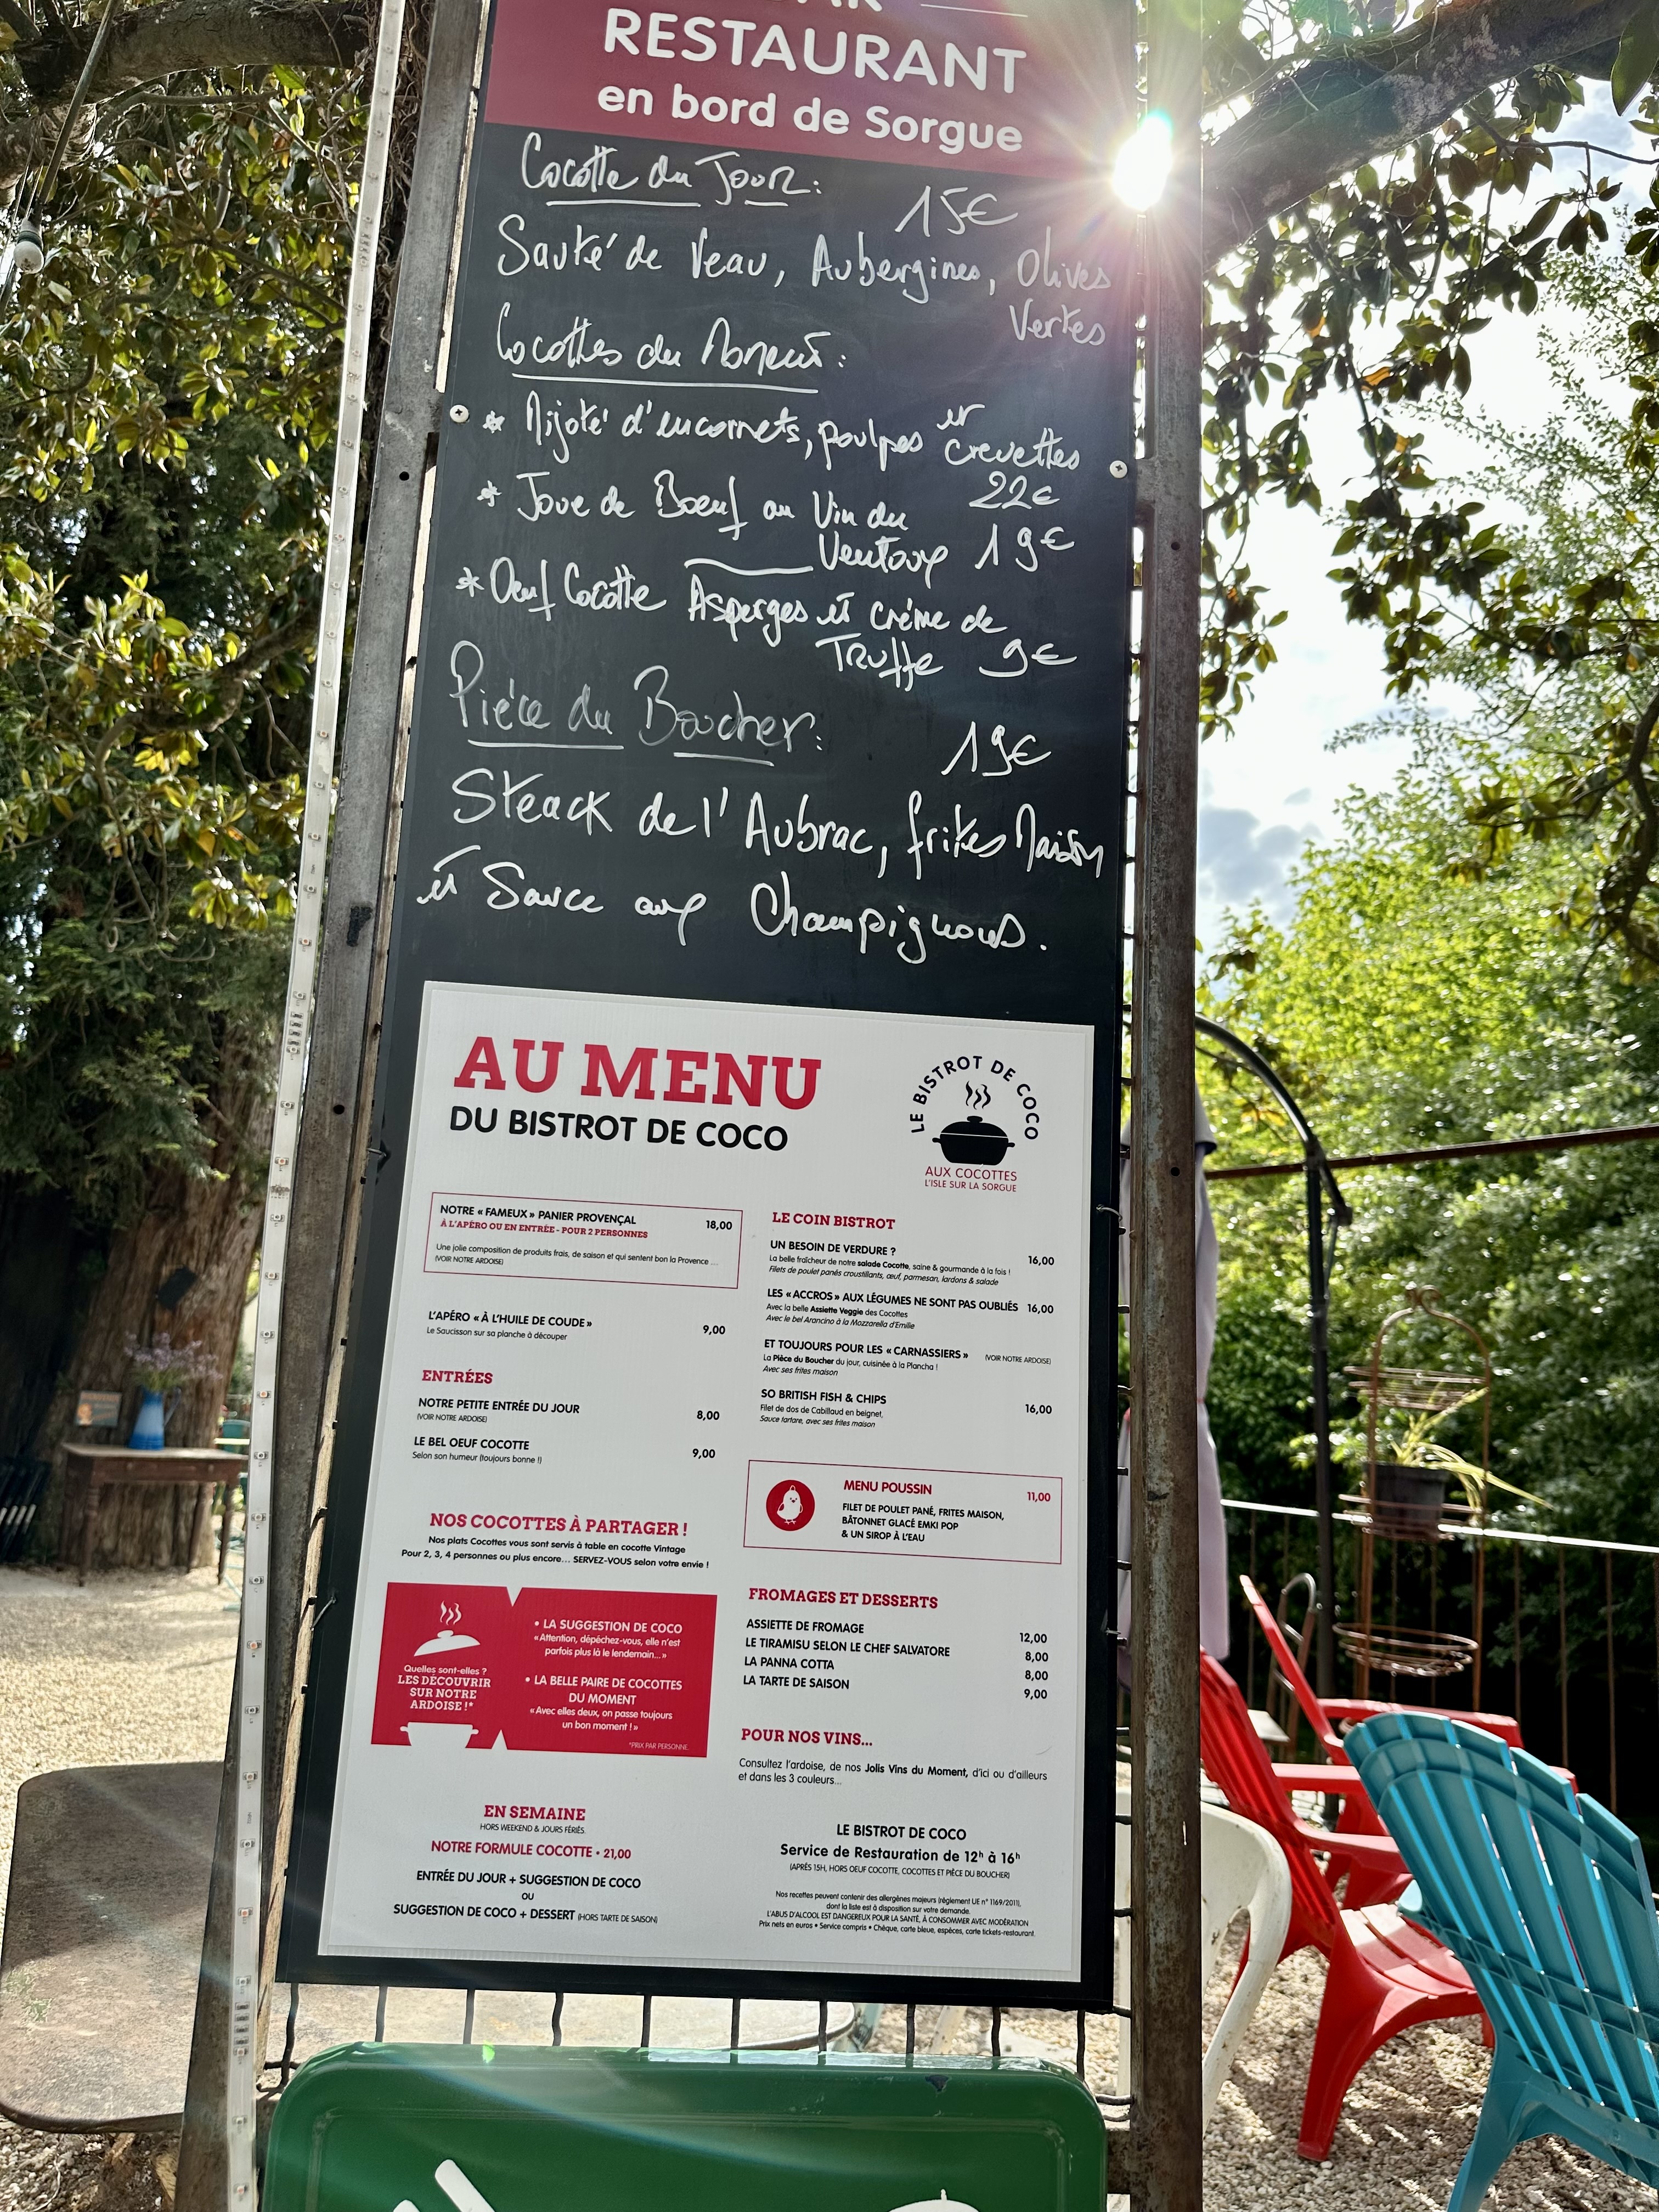 RESTAURANT
en bord de Sorgue
Cocotte du Jour: 15€
Sauté de Veau, Aubergines, Olives
Vertes
Cocottes du Moment:
* Mijoté d'encornets, poulpes et
crevettes
22€
* Joue de Boeuf au Vin du
Ventoux 19€
* Oeuf Cocotte Asperges et crème de
Truffe 9€
Pièce du Boucher: 19€
Steack de l'Aubrac, frites Maison
et Sauce aux Champignons.
AU MENU
DU BISTROT DE COCO
LE BISTROT DE COCO
AUX COCOTTES
L'ISLE SUR LA SORGUE
NOTRE « FAMEUX » PANIER PROVENÇAL 18,00
À L'APÉRO OU EN ENTRÉE - POUR 2 PERSONNES
Une jolie composition de produits frais, de saison et qui sentent bon la Provence ...
(VOIR NOTRE ARDOISE)
L'APÉRO « À L'HUILE DE COUDE » 9,00
Le Saucisson sur sa planche à découper
ENTRÉES
NOTRE PETITE ENTRÉE DU JOUR 8,00
(VOIR NOTRE ARDOISE)
LE BEL OEUF COCOTTE 9,00
Selon son humeur (toujours bonne !)
NOS COCOTTES À PARTAGER !
Nos plats Cocottes vous sont servis à table en cocotte Vintage
Pour 2, 3, 4 personnes ou plus encore... SERVEZ-VOUS selon votre envie !
Quelles sont-elles ?
LES DÉCOUVRIR
SUR NOTRE
ARDOISE !*
• LA SUGGESTION DE COCO
« Attention, dépêchez-vous, elle n'est
parfois plus là le lendemain... »
• LA BELLE PAIRE DE COCOTTES
DU MOMENT
« Avec elles deux, on passe toujours
un bon moment ! »
*PRIX PAR PERSONNE.
EN SEMAINE
HORS WEEKEND & JOURS FÉRIÉS.
NOTRE FORMULE COCOTTE • 21,00
ENTRÉE DU JOUR + SUGGESTION DE COCO
OU
SUGGESTION DE COCO + DESSERT (HORS TARTE DE SAISON)
LE COIN BISTROT
UN BESOIN DE VERDURE ? 16,00
La belle fraîcheur de notre salade Cocotte, saine & gourmande à la fois !
Filets de poulet panés croustillants, œuf, parmesan, lardons & salade
LES « ACCROS » AUX LÉGUMES NE SONT PAS OUBLIÉS 16,00
Avec la belle Assiette Veggie des Cocottes
Avec le bel Arancino à la Mozzarella d'Emilie
ET TOUJOURS POUR LES « CARNASSIERS » (VOIR NOTRE ARDOISE)
La Pièce du Boucher du jour, cuisinée à la Plancha !
Avec ses frites maison
SO BRITISH FISH & CHIPS 16,00
Filet de dos de Cabillaud en beignet,
Sauce tartare, avec ses frites maison
MENU POUSSIN 11,00
FILET DE POULET PANÉ, FRITES MAISON,
BÂTONNET GLACÉ EMKI POP
& UN SIROP À L'EAU
FROMAGES ET DESSERTS
ASSIETTE DE FROMAGE 12,00
LE TIRAMISU SELON LE CHEF SALVATORE 8,00
LA PANNA COTTA 8,00
LA TARTE DE SAISON 9,00
POUR NOS VINS...
Consultez l'ardoise, de nos Jolis Vins du Moment, d'ici ou d'ailleurs
et dans les 3 couleurs...
LE BISTROT DE COCO
Service de Restauration de 12h à 16h
(APRÈS 15H, HORS OEUF COCOTTE, COCOTTES ET PIÈCE DU BOUCHER)
Nos recettes peuvent contenir des allergènes majeurs (règlement UE n° 1169/2011),
dont la liste est à disposition sur votre demande.
L'ABUS D'ALCOOL EST DANGEREUX POUR LA SANTÉ, À CONSOMMER AVEC MODÉRATION
Prix nets en euros • Service compris • Chèque, carte bleue, espèces, carte tickets-restaurant.